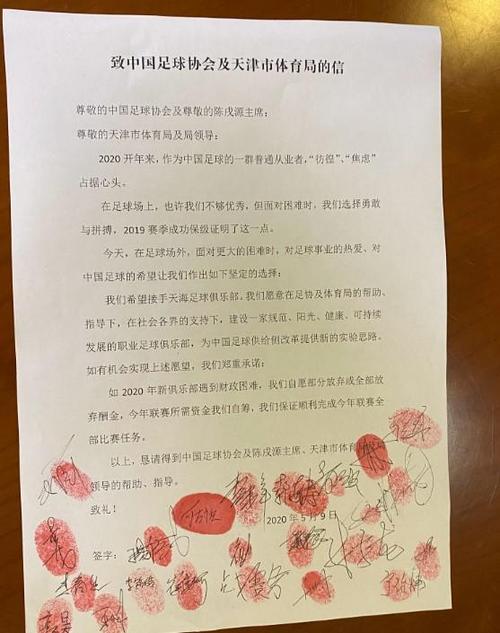 致中国足球协会及天津市体育局的信
尊敬的中国足球协会及尊敬的陈戌源主席：
尊敬的天津市体育局及局领导：
2020 开年来，作为中国足球的一群普通从业者，“彷徨”、“焦虑”
占据心头。
在足球场上，也许我们不够优秀，但面对困难时，我们选择勇敢
与拼搏，2019 赛季成功保级证明了这一点。
今天，在足球场外，面对更大的困难时，对足球事业的热爱、对
中国足球的希望让我们作出如下坚定的选择：
我们希望接手天海足球俱乐部。我们愿意在足协及体育局的帮助、
指导下，在社会各界的支持下，建设一家规范、阳光、健康、可持续
发展的职业足球俱乐部，为中国足球供给侧改革提供新的实验思路。
如有机会实现上述愿望，我们郑重承诺：
如 2020 年新俱乐部遇到财政困难，我们自愿部分放弃或全部放
弃酬金，今年联赛所需资金我们自筹，我们保证顺利完成今年联赛全
部比赛任务。
以上，恳请得到中国足球协会及陈戌源主席、天津市体育
领导的帮助、指导。
致礼！
2020 年 5 月 9 日
签字：